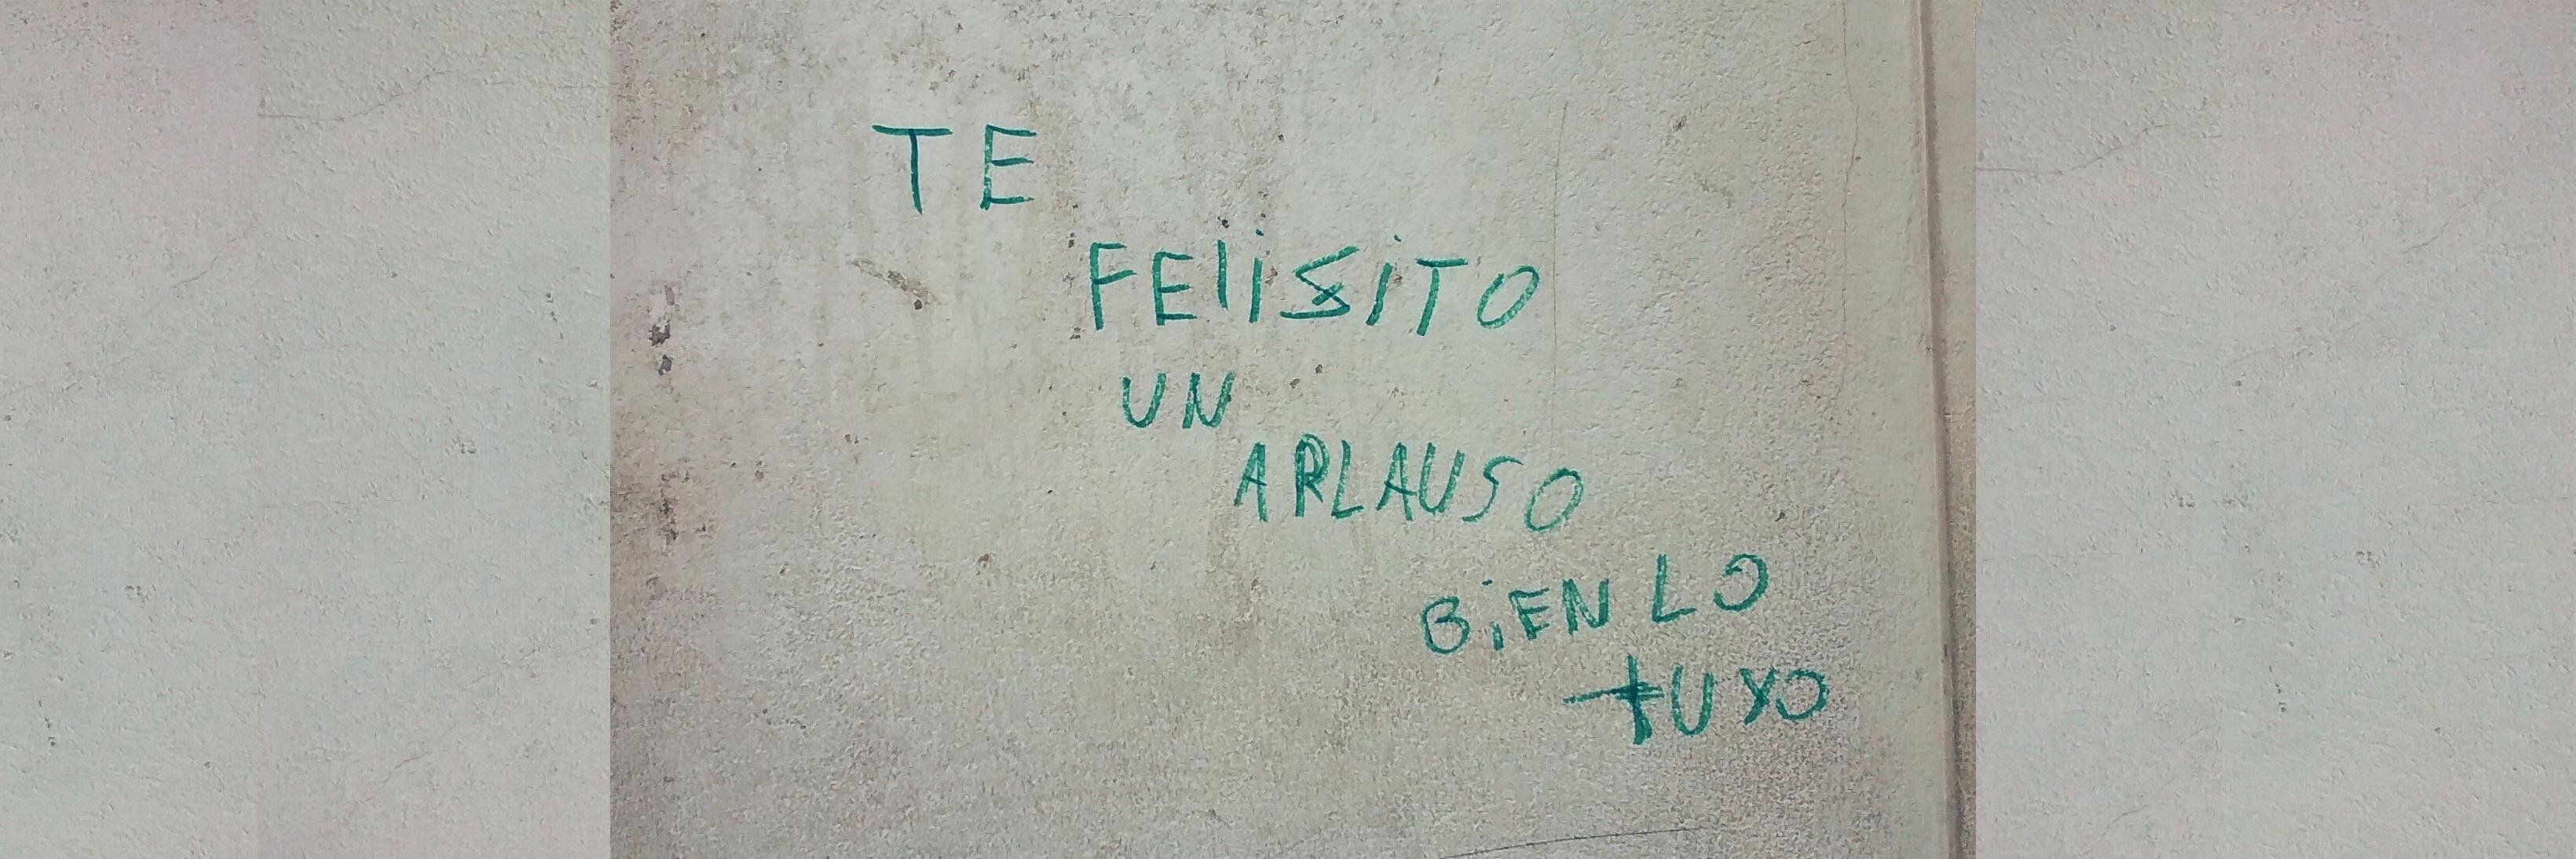 TE
FEliSiTO
UN
ARLAUSO
BiEN LO
tUYO